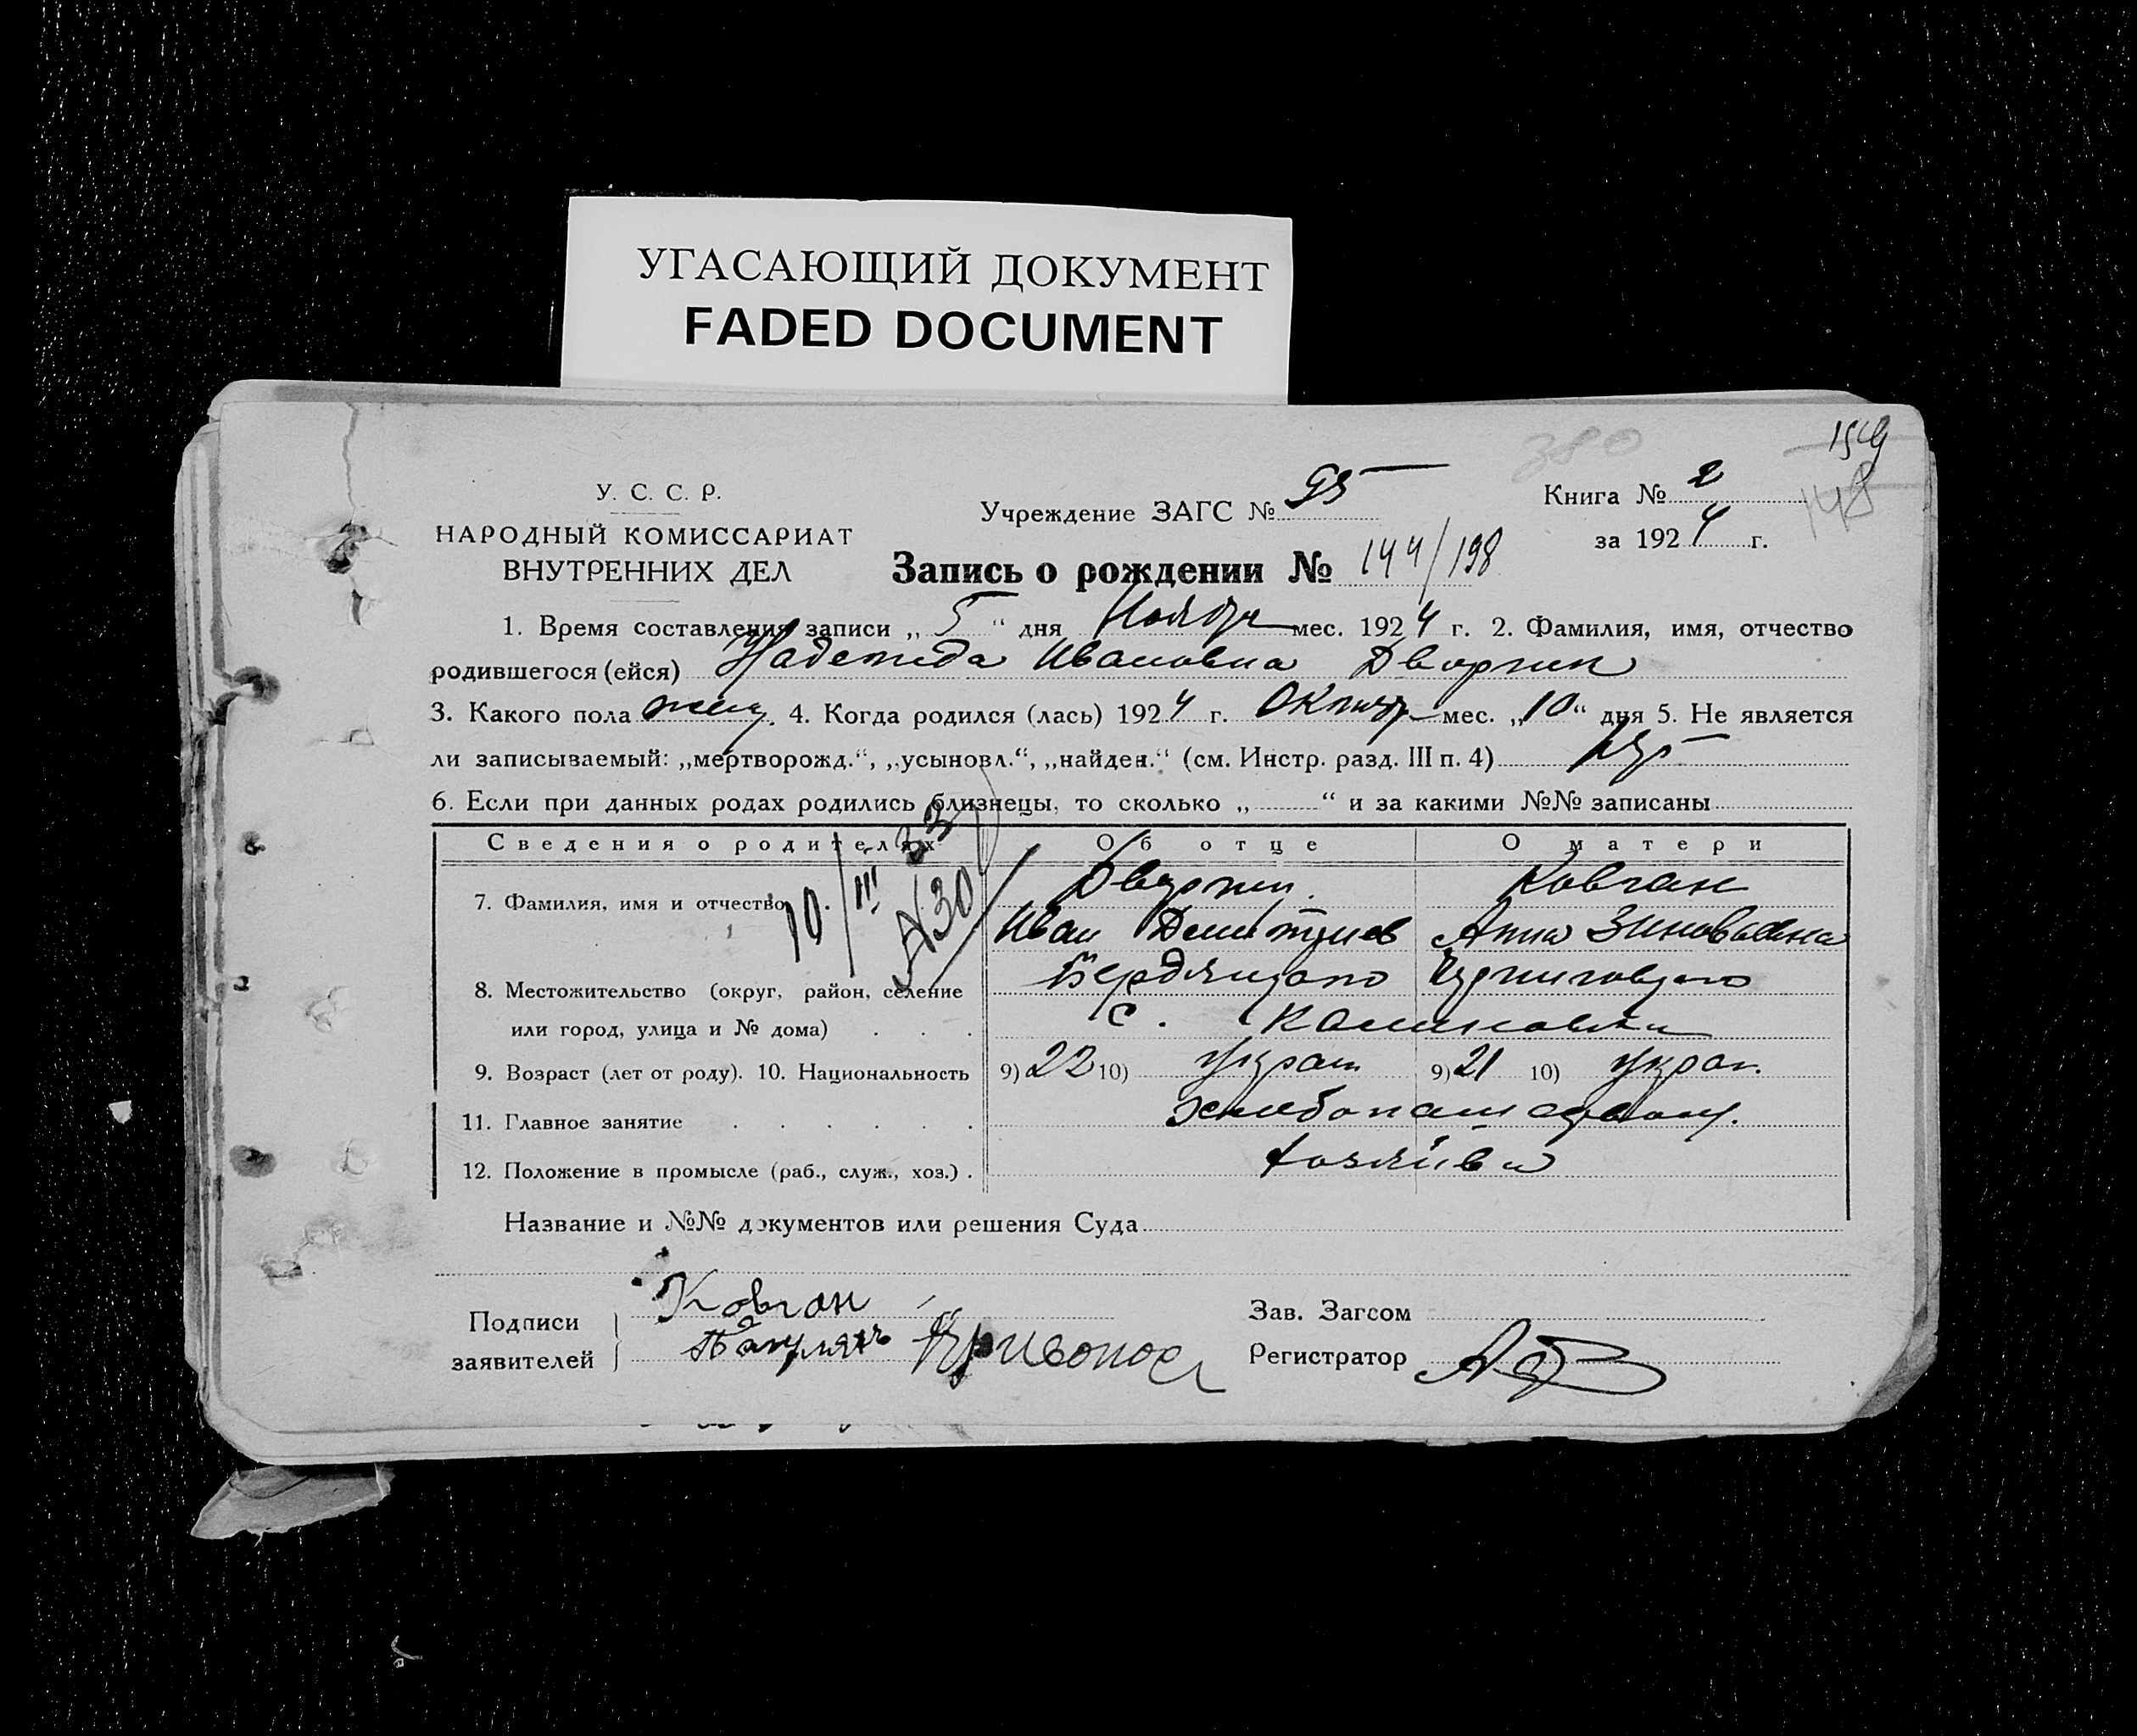 УГАСАЮЩИЙ ДОКУМЕНТ
FADED DOCUMENT
380
148
У. С. С. Р.
НАРОДНЫЙ КОМИССАРИАТ
ВНУТРЕННИХ ДЕЛ
Учреждение ЗАГС № 95
Книга № 2
за 1924 г.
Запись о рождении № 144/198
1. Время составления записи „ 5 “ дня Ноября мес. 1924 г. 2. Фамилия, имя, отчество
родившегося (ейся) Надежда Ивановна Дворник
3. Какого пола жен. 4. Когда родился (лась) 1924 г. Октябр мес. „10“ дня 5. Не является
ли записываемый: „мертворожд.“, „усыновл.“, „найден.“ (см. Инстр. разд. III п. 4)
6. Если при данных родах родились близнецы, то сколько „ “ и за какими №№ записаны
Сведения о родителях Об отце О матери
10/III 33
7. Фамилия, имя и отчество Дворник Ковган
Иван Дмитриев Анна Зиновьевна
8. Местожительство (округ, район, селение
или город, улица и № дома) с.
9. Возраст (лет от роду). 10. Национальность 9) 22 10) Украин 9) 21 10) Украин.
11. Главное занятие хлебопашеством.
12. Положение в промысле (раб., служ., хоз.) хозяева
Название и №№ документов или решения Суда
Подписи
заявителей
Ковган
Кривонос
Зав. Загсом
Регистратор